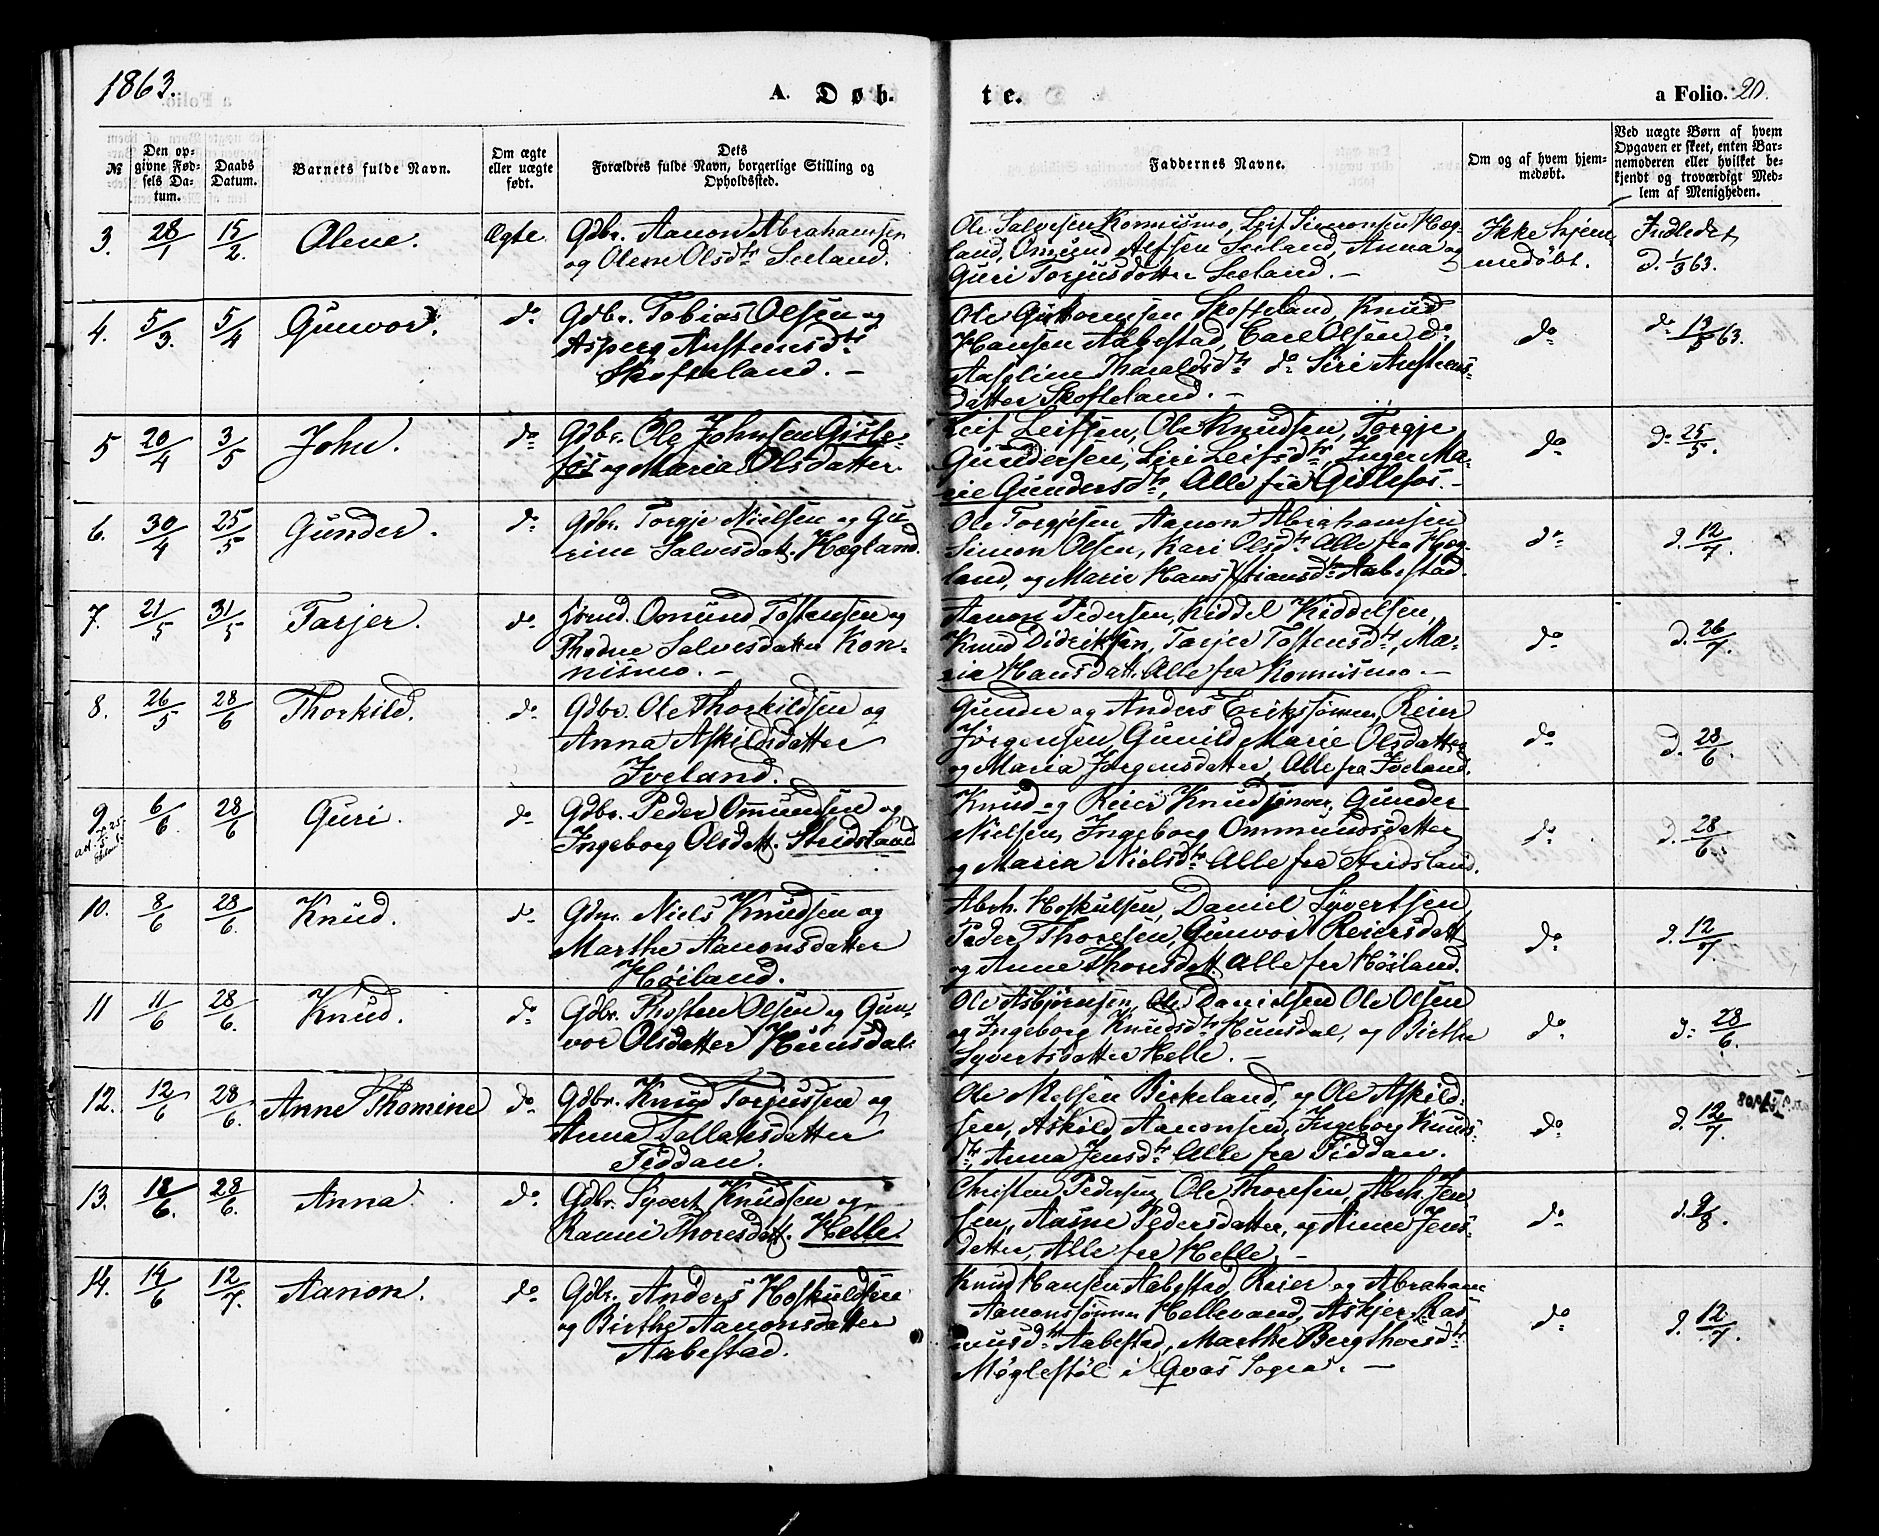 1863.
A. Døb-
te.
a Folio. 20.
№
Den op-
givne Fød-
sels Da-
tum.
Daabs
Datum.
Barnets fulde Navn.
Om ægte
eller uægte
født.
Dets
Forældres fulde Navn, borgerlige Stilling og
Opholdssted.
Faddernes Navne.
Om og af hvem hjem-
medøbt.
Ved uægte Børn af hvem
Opgaven er skeet, enten Bar-
nemoderen eller hvilket be-
kjendt og troværdigt Med-
lem af Menigheden.
3. 28/1 15/2. Olene. Ægte.
Gdbr. Aanon Abrahamsen
og Olene Olsdtr Seeland.
Ole Salvesen Konnismo, Leif Simonsen Hæg-
land, Omund Alfsen Seeland, Anna og
Guri Torjusdotter Seeland. –
Ikke hjem-
medøbt.
Indledet
d. 1/3 63.
4. 5/3. 5/4 Gunvor. do
Gdbr. Tobias Olsen og
Asperg Austensdtr
Skofteland. –
Ole Guttormsen Skofteland, Knud
Hansen Aabestad, Carl Olsen do
Aaseline Tharaldsdtr do Siri Austens-
datter Skofteland. –
do
do 13/5 63.
5 20/4 3/5 John. do
Gdbr. Ole Johnsen Gisle-
fos og Maria Olsdatter.
Leif Leifsen, Ole Knudsen, Torgje
Gundersen, Siri Leifsdtr, Inger Ma-
rie Gundersdtr, Alle fra Gislefos. –
do
d. 25/5.
6. 30/4 25/5 Gunder. do
Gdbr. Torgje Nielsen og Gu-
rine Salvesdatt. Hægland.
Ole Torgjesen, Aanon Abrahamsen
Simon Olsen, Kari Olsdtr Alle fra Hæg-
land, og Marie Hans Christiansdtr Aabestad.
do
d. 12/7.
7. 21/5 31/5 Tarjer. do
Omund Tostensen og
Thodne Salvesdatter Kon-
nismo. –
Aanon Pedersen, Kiddel Kiddelsen,
Knud Didriksen, Tarjer Tostensdtr, Ma-
ria Hansdatt. Alle fra Konnismo. –
do
d. 26/7.
8. 26/5 28/6 Thorkild. do
Gdbr. Ole Thorkildsen og
Anna Askildsdatter
Iveland.
Gunder og Anders Erikssønner, Reier
Jørgensen Gunild Marie Olsdatter
og Maria Jørgensdatter, Alle fra Iveland.
do
d. 28/6.
9. 6/6 28/6 Guri. do
Gdbr. Peder Omundsen og
Ingeborg Olsdatt. Stridsland
Knud og Reier Knudsønner, Gunder
Nielsen, Ingeborg Ommundsdatter
og Maria Nielsdtr Alle fra Stridsland.
do
d. 28/6.
10. 8/6 28/6. Knud. do
Gdm. Niels Knudsen og
Marthe Aanonsdatter
Høiland.
Abrh. Hoskulsen, Daniel Syvertsen
Peder Thoresen, Gunvor Reiersdatt
og Anne Thorsdatt Alle fra Høiland.
do
d. 12/7.
11 11/6 28/6. Knud. do
Gdbr. Thosten Olsen og Gun-
vor Olsdatter Hunsdal.
Ole Asbjørnsen, Ole Danielsen Ole Olsen
og Ingeborg Knudsdtr Hunsdal, og Birthe
Syvertsdatter Helle. –
do
d: 28/6.
12. 12/6 28/6. Anne Thomine do
Gdbr. Knud Torjussen og
Anna Tellaksdatter
Tiddan.
Ole Nielsen Birkeland, og Ole Askild-
sen, Askild Aanonsen, Ingeborg Knuds-
dtr, Anna Jensdtr Alle fra Tiddan.
do
d. 12/7.
13. 18/6. 28/6. Anna. do
Gdbr. Syvert Knudsen og
Ranni Thoresdatt. Helle.
Christen Pedersen, Ole Thoresen, Abrh. Jen-
sen, Aasne Pedersdatter, og Anne Jens-
datter, Alle fra Helle. –
do
d. 9/8.
14. 14/6 12/7. Aanon. do
Gdbr. Anders Hoskuldsen
og Birthe Aanonsdatter
Aabestad.
Knud Hansen Aabestad, Reier og Abraham
Aanonssønner Hellevand, Askjer Ras-
musdtr Aabestad, Marthe Bergthorsdtr
Møglestøl i Qvas Sogn. –
do
d. 12/7.